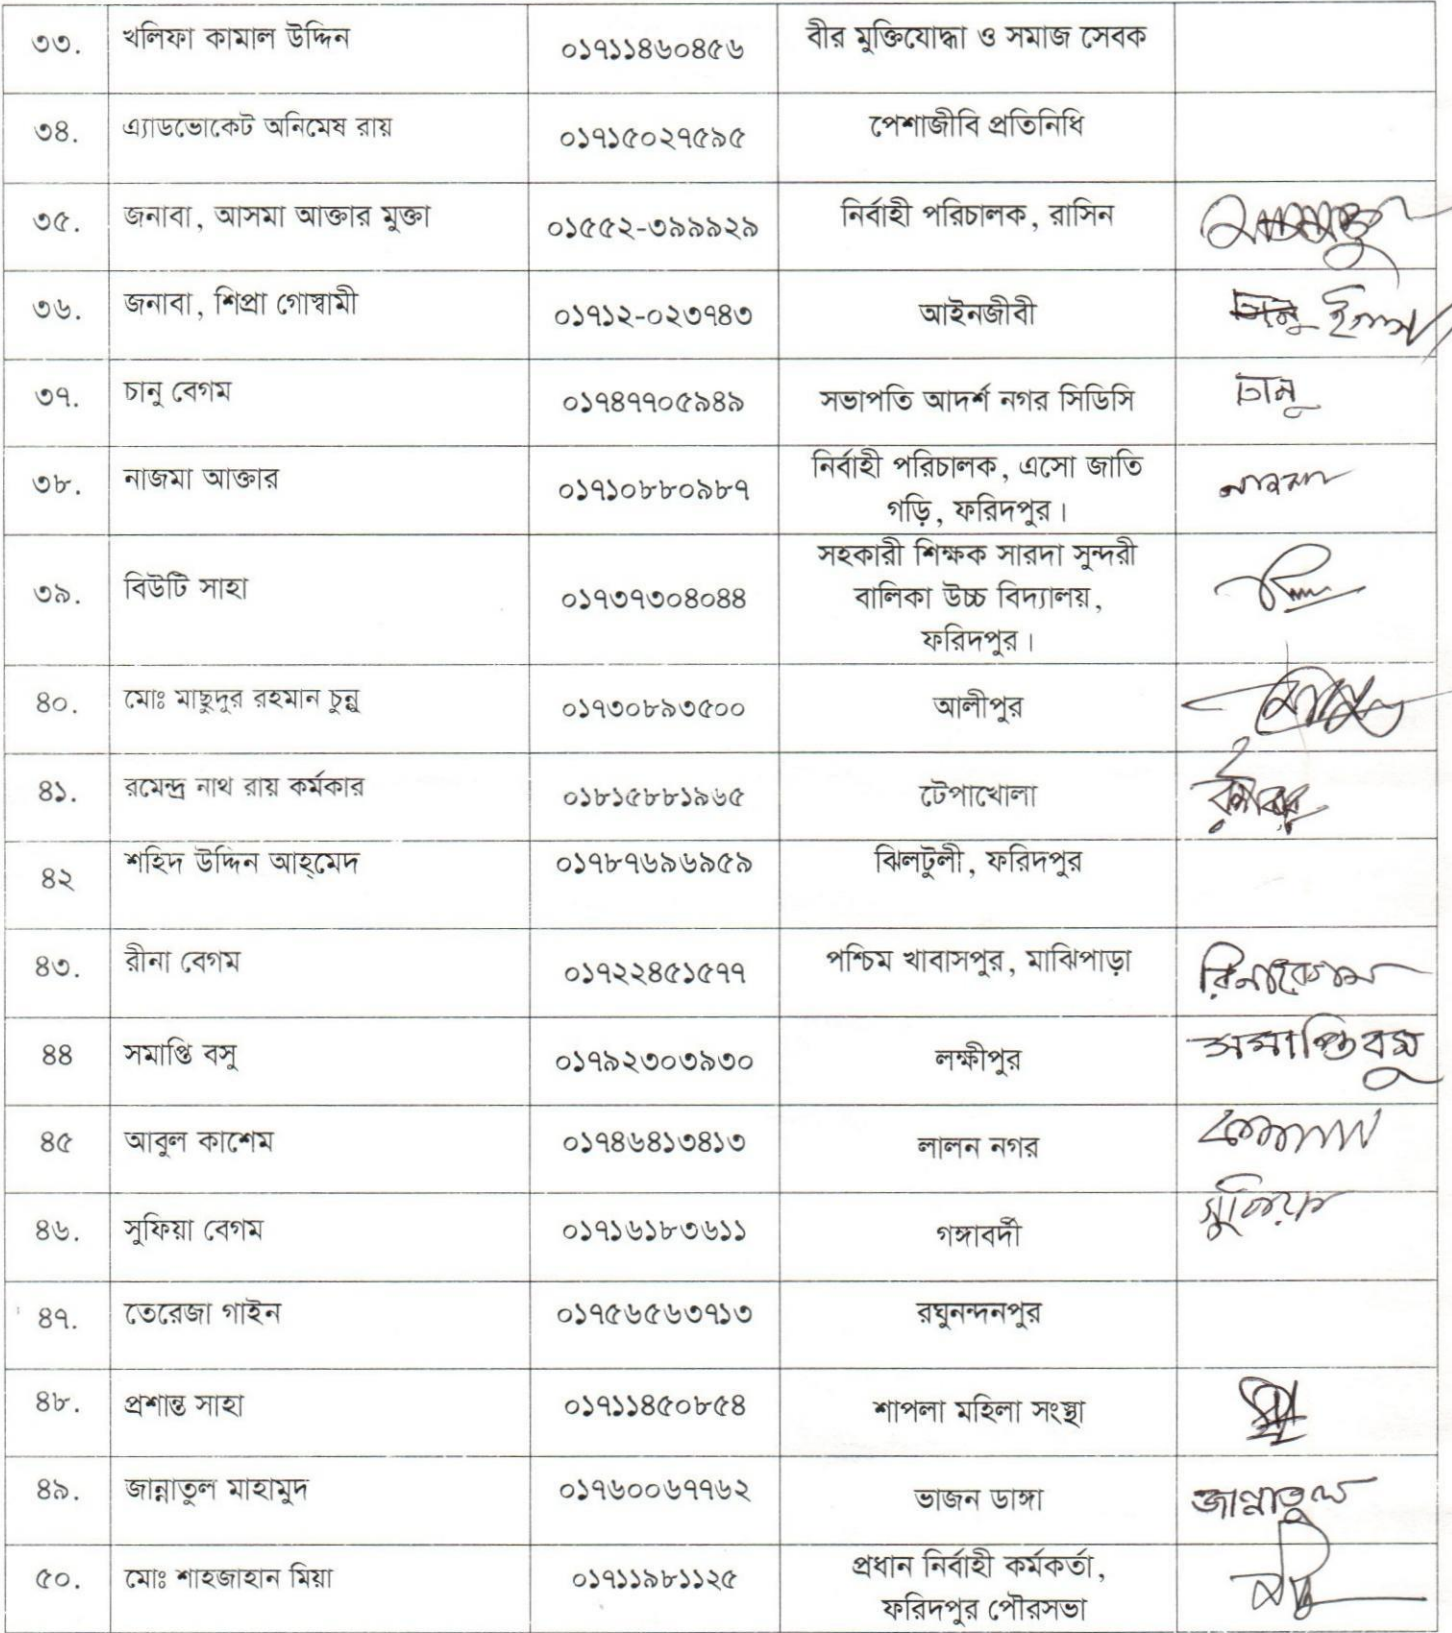 ৩৩. খলিফা কামাল উদ্দিন ০১৭১১৪৬০৪৫৬ বীর মুক্তিযোদ্ধা ও সমাজ সেবক
৩৪. এ্যাডভোকেট অনিমেষ রায় ০১৭১৫০২৭৫৯৫ পেশাজীবি প্রতিনিধি
৩৫. জনাবা, আসমা আক্তার মুক্তা ০১৫৫২-৩৯৯৯২৯ নির্বাহী পরিচালক, রাসিন
৩৬. জনাবা, শিপ্রা গোস্বামী ০১৭১২-০২৩৭৪৩ আইনজীবী
৩৭. চানু বেগম ০১৭৪৭৭০৫৯৪৯ সভাপতি আদর্শ নগর সিডিসি চানু
৩৮. নাজমা আক্তার ০১৭১০৮৮০৯৮৭ নির্বাহী পরিচালক, এসো জাতি
গড়ি, ফরিদপুর। নাজমা
৩৯. বিউটি সাহা ০১৭৩৭৩০৪০৪৪ সহকারী শিক্ষক সারদা সুন্দরী
বালিকা উচ্চ বিদ্যালয়,
ফরিদপুর।
৪০. মোঃ মাছুদুর রহমান চুন্নু ০১৭৩০৮৯৩৫০০ আলীপুর
৪১. রমেন্দ্র নাথ রায় কর্মকার ০১৮১৫৮৮১৯৬৫ টেপাখোলা
৪২ শহিদ উদ্দিন আহ্‌মেদ ০১৭৮৭৬৯৬৯৫৯ ঝিলটুলী, ফরিদপুর
৪৩. রীনা বেগম ০১৭২২৪৫১৫৭৭ পশ্চিম খাবাসপুর, মাঝিপাড়া রিনা বেগম
৪৪ সমাপ্তি বসু ০১৭৯২৩০৩৯৩০ লক্ষীপুর সমাপ্তি বসু
৪৫ আবুল কাশেম ০১৭৪৬৪১৩৪১৩ লালন নগর
৪৬. সুফিয়া বেগম ০১৭১৬১৮৩৬১১ গঙ্গাবর্দী সুফিয়া
৪৭. তেরেজা গাইন ০১৭৫৬৫৬৩৭১৩ রঘুনন্দনপুর
৪৮. প্রশান্ত সাহা ০১৭১১৪৫০৮৫৪ শাপলা মহিলা সংস্থা
৪৯. জান্নাতুল মাহামুদ ০১৭৬০০৬৭৭৬২ ভাজন ডাঙ্গা জান্নাতুল
৫০. মোঃ শাহজাহান মিয়া ০১৭১১৯৮১১২৫ প্রধান নির্বাহী কর্মকর্তা,
ফরিদপুর পৌরসভা